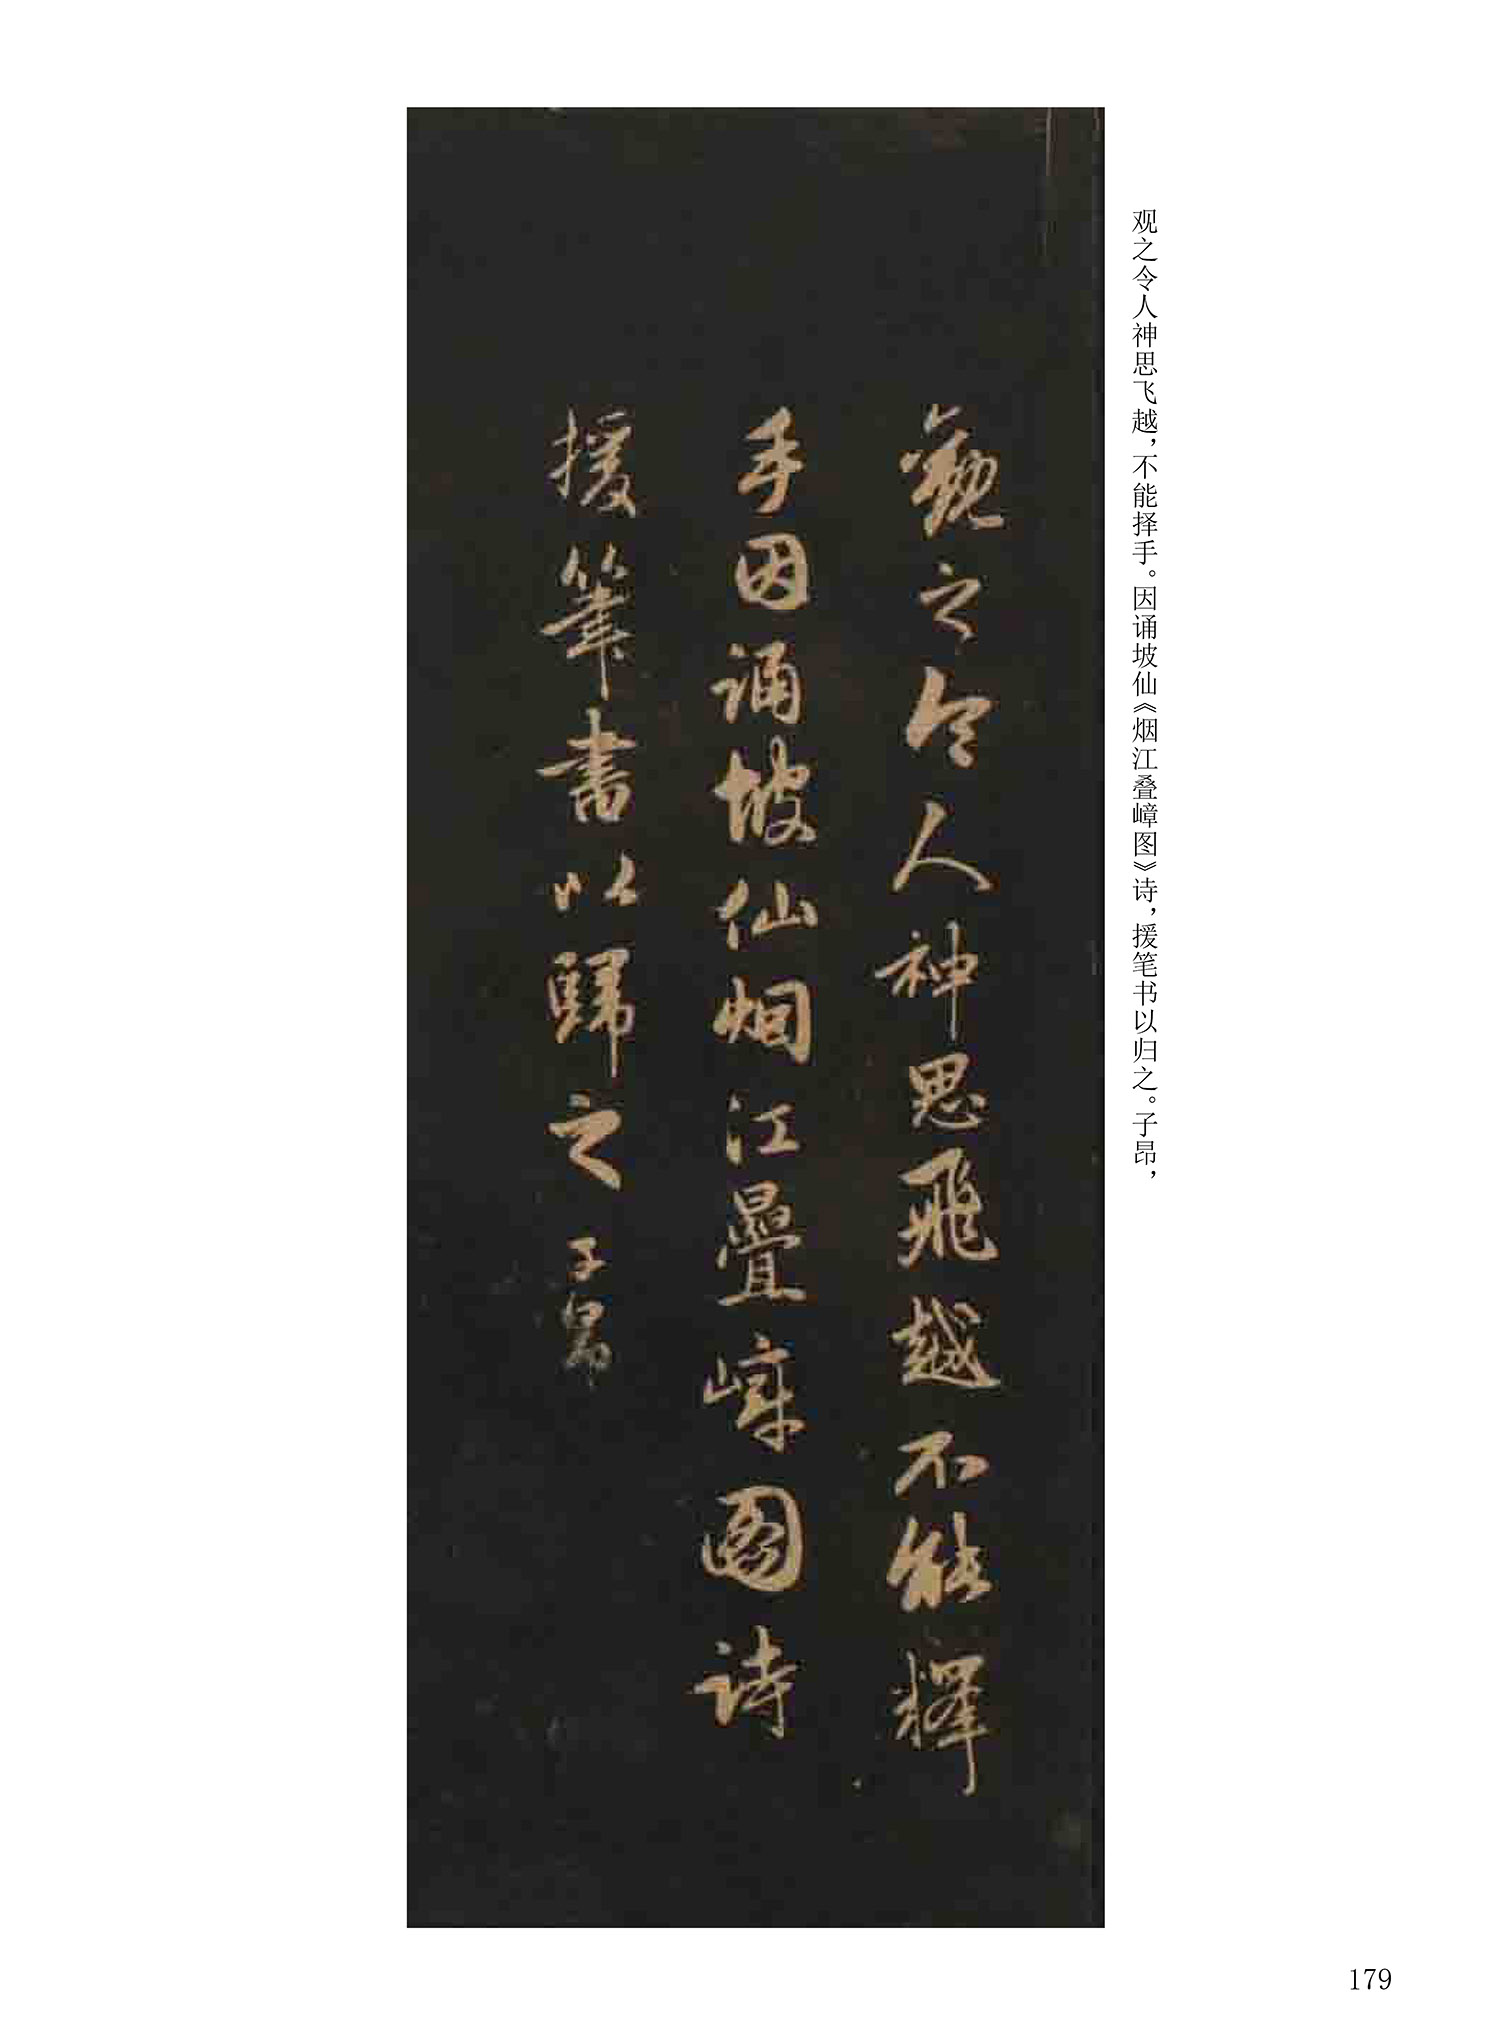 观之令人神思飞越，不能择手。因诵坡仙《烟江叠嶂图》诗，援笔书以归之。子昂，
觀之令人神思飛越不能釋
手因誦坡仙烟江疊嶂圖詩
援筆書以歸之 子昂
179